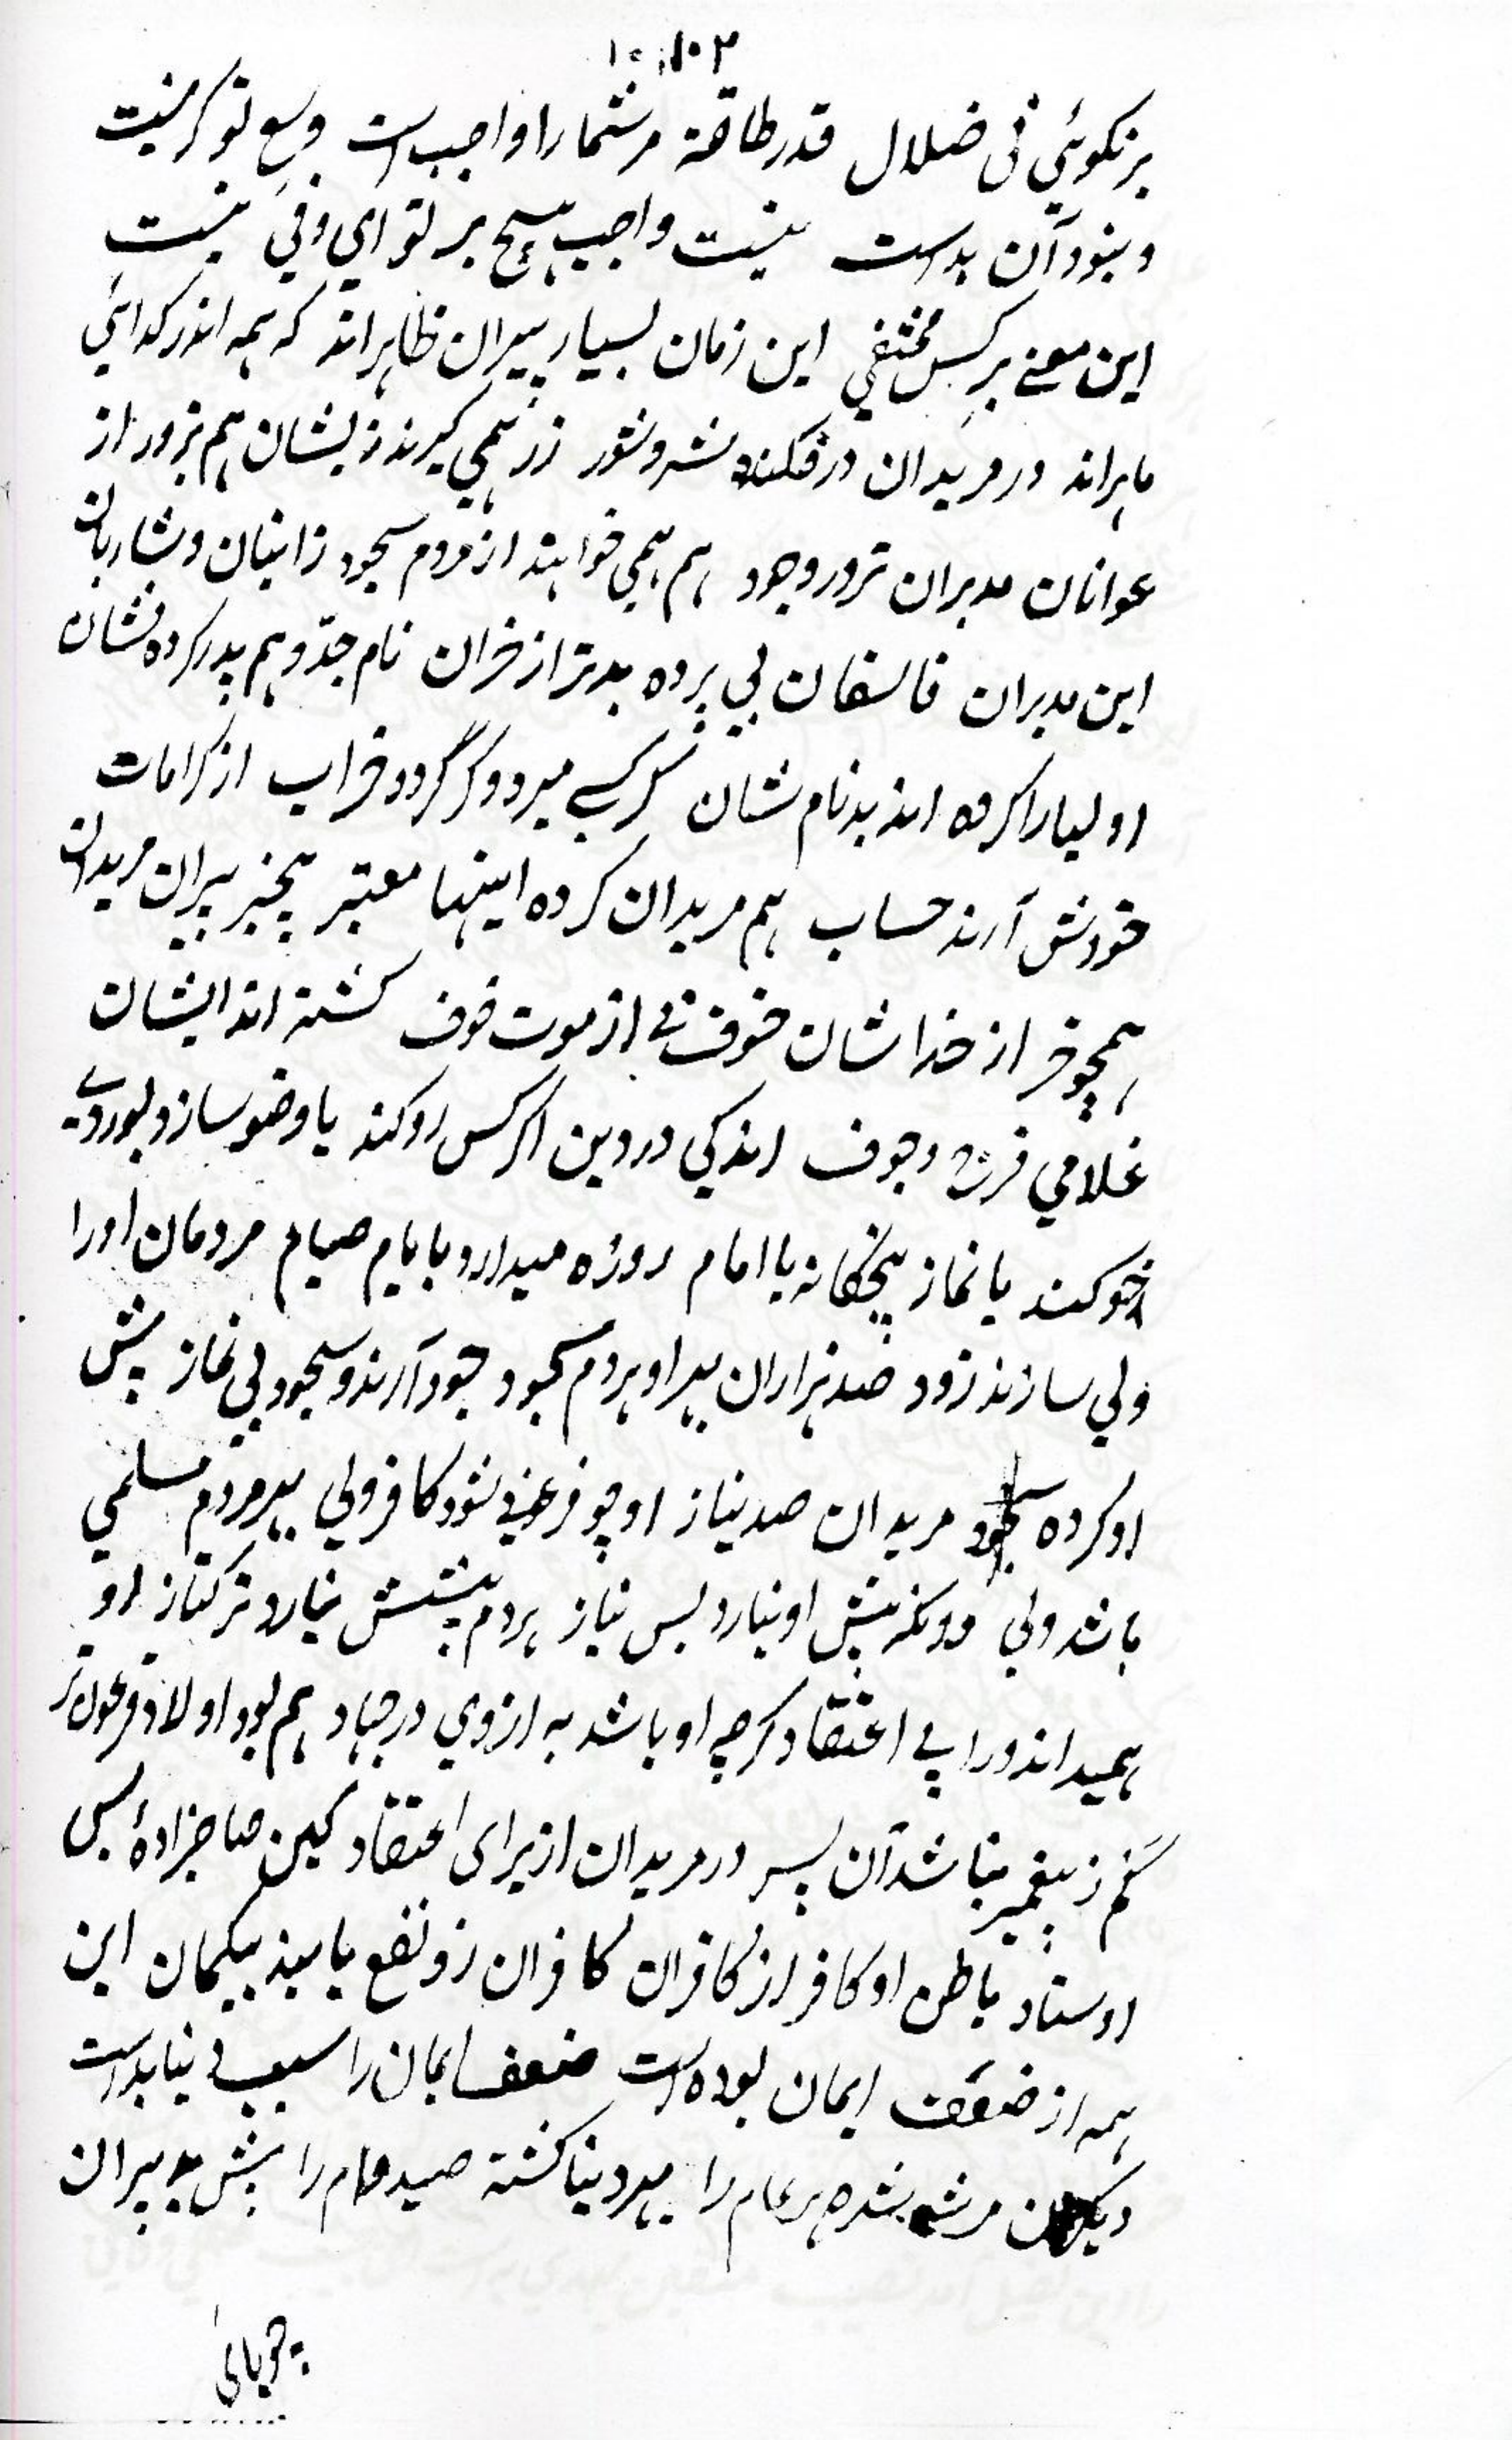 برنکوئي في ضلال قدر طاقة مرشمارا واجب است وسع تو گر نیست
و بنود آن بدست نیست واجب هیچ بر تو ای وفي نیست
این معنے بر کس مختفي این زمان بسیار پیران ظاهراند که همه اندر کدائي
ماهراند در مریدان درفکنده شر و شور زر همي کیرند زیشان هم بزور از
عوانان مدبران تر در وجود هم همي خواهند از مردم سجود زانیان و شاربان
این مدبران فاسقان بي پرده بدتر از خران نام جدّ و هم پدر کرده نشان
اولیا را کرده اند بدنام شان گر کسے میرد و گر گردد خراب از کرامات
خودش آرند حساب هم مریدان کرده اینها معتبر بیخبر پیران مریدان
همچو خر از خدا شان خوف نے از موت خوف کشته اند ایشان
غلامي فرج و جوف اندکي در دین اکر کس رو کند یا وضو سازد بوردے
خو کند یا نماز پنجکانه با امام روزه میدارد بایام صیام مردمان اورا
ولي سازند زود صد هزاران پیر او هردم سجود جود آرند و سجود بي نماز پیش
او کرده سجود مریدان صد نیاز او چو فرعوني شود کافر ولي پیر مردم مسلمي
باشد ولي وونکه پیش او نیارد بس نیاز هردم پیشش نیارد ترکتاز او
همیداند ورا بے اعتقاد گرچه او باشد به از وي در جهاد هم بود اولاد فرعون تر
کم ز پیغمبر نباشد آن پسر در مریدان از برای اعتقاد کین صاحبزادهٔ بس
اوستاد باطن او کافر از کافران کافران زو نفع یابند بیکمان این
همه از ضعف ایمان بوده است ضعف ایمان را سببے دنیا بدست
مرشد شده هر عام را بهر دنیا کشته صید دام را پیش پیران
چوپائي